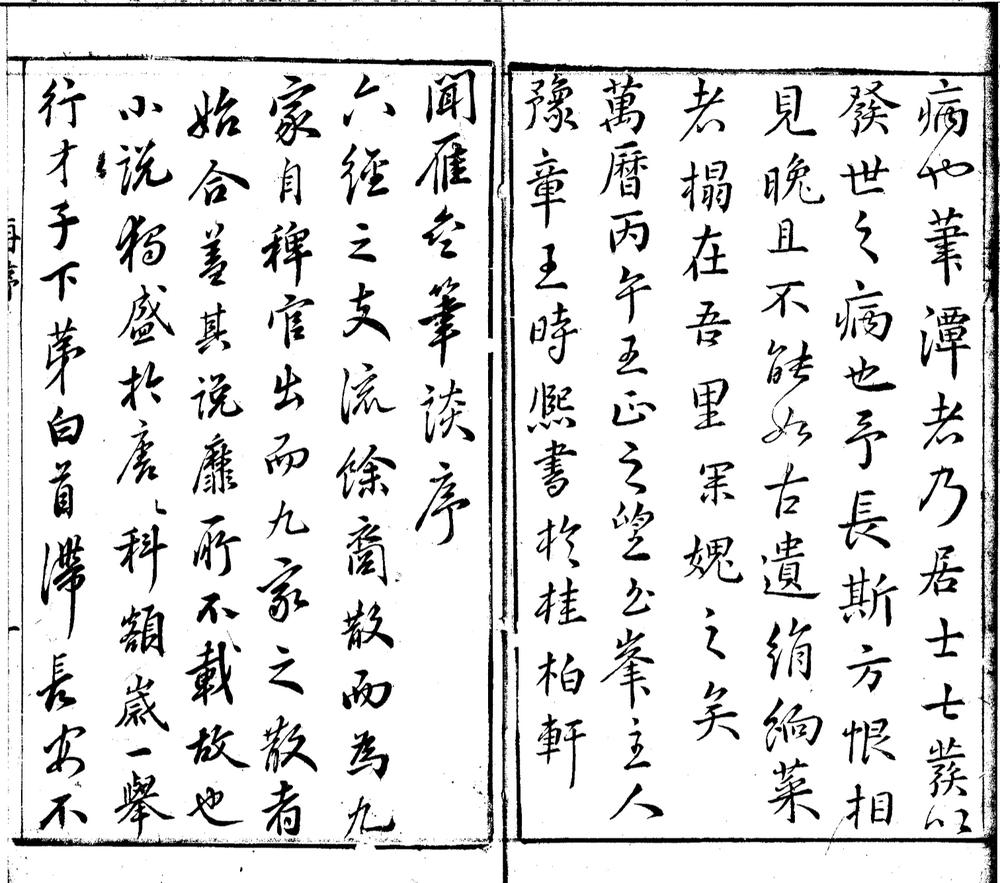 病也筆潭老乃居士士發以
發世之病也予長斯方恨相
見晚且不能如古遺絹緗菜
老榻在吾里罙媿之矣
萬曆丙午五正之望玄峯主人
豫章王時熙書於桂柏軒
聞雁齋筆談序
六經之支流餘裔散而為九
家自稗官出而九家之散者
始合蓋其說靡所不載故也
小說獨盛於唐唐科額歲一舉
行才子下第白首滯長安不